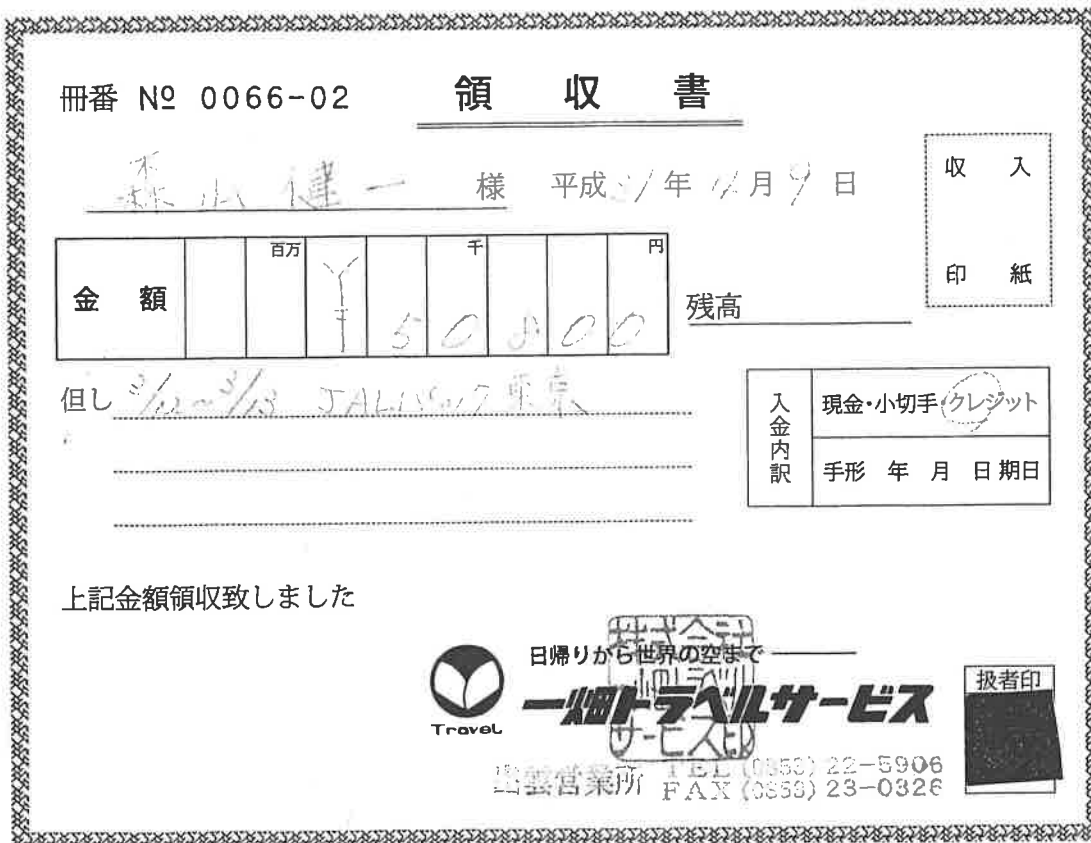 冊番 № 0066-02 領収書
森山健一 様 平成31年 月9日
収入
印紙
金額 百万 千 円
¥50800
残高
但し 3/12~3/13 JALパック東京
入金内訳 現金・小切手・クレジット
手形 年 月 日期日
上記金額領収致しました
株式会社
日帰りから世界の空まで
一畑トラベルサービス
サービス印
Travel
扱者印
出雲営業所 TEL (0853) 22-5906
FAX (0853) 23-0326